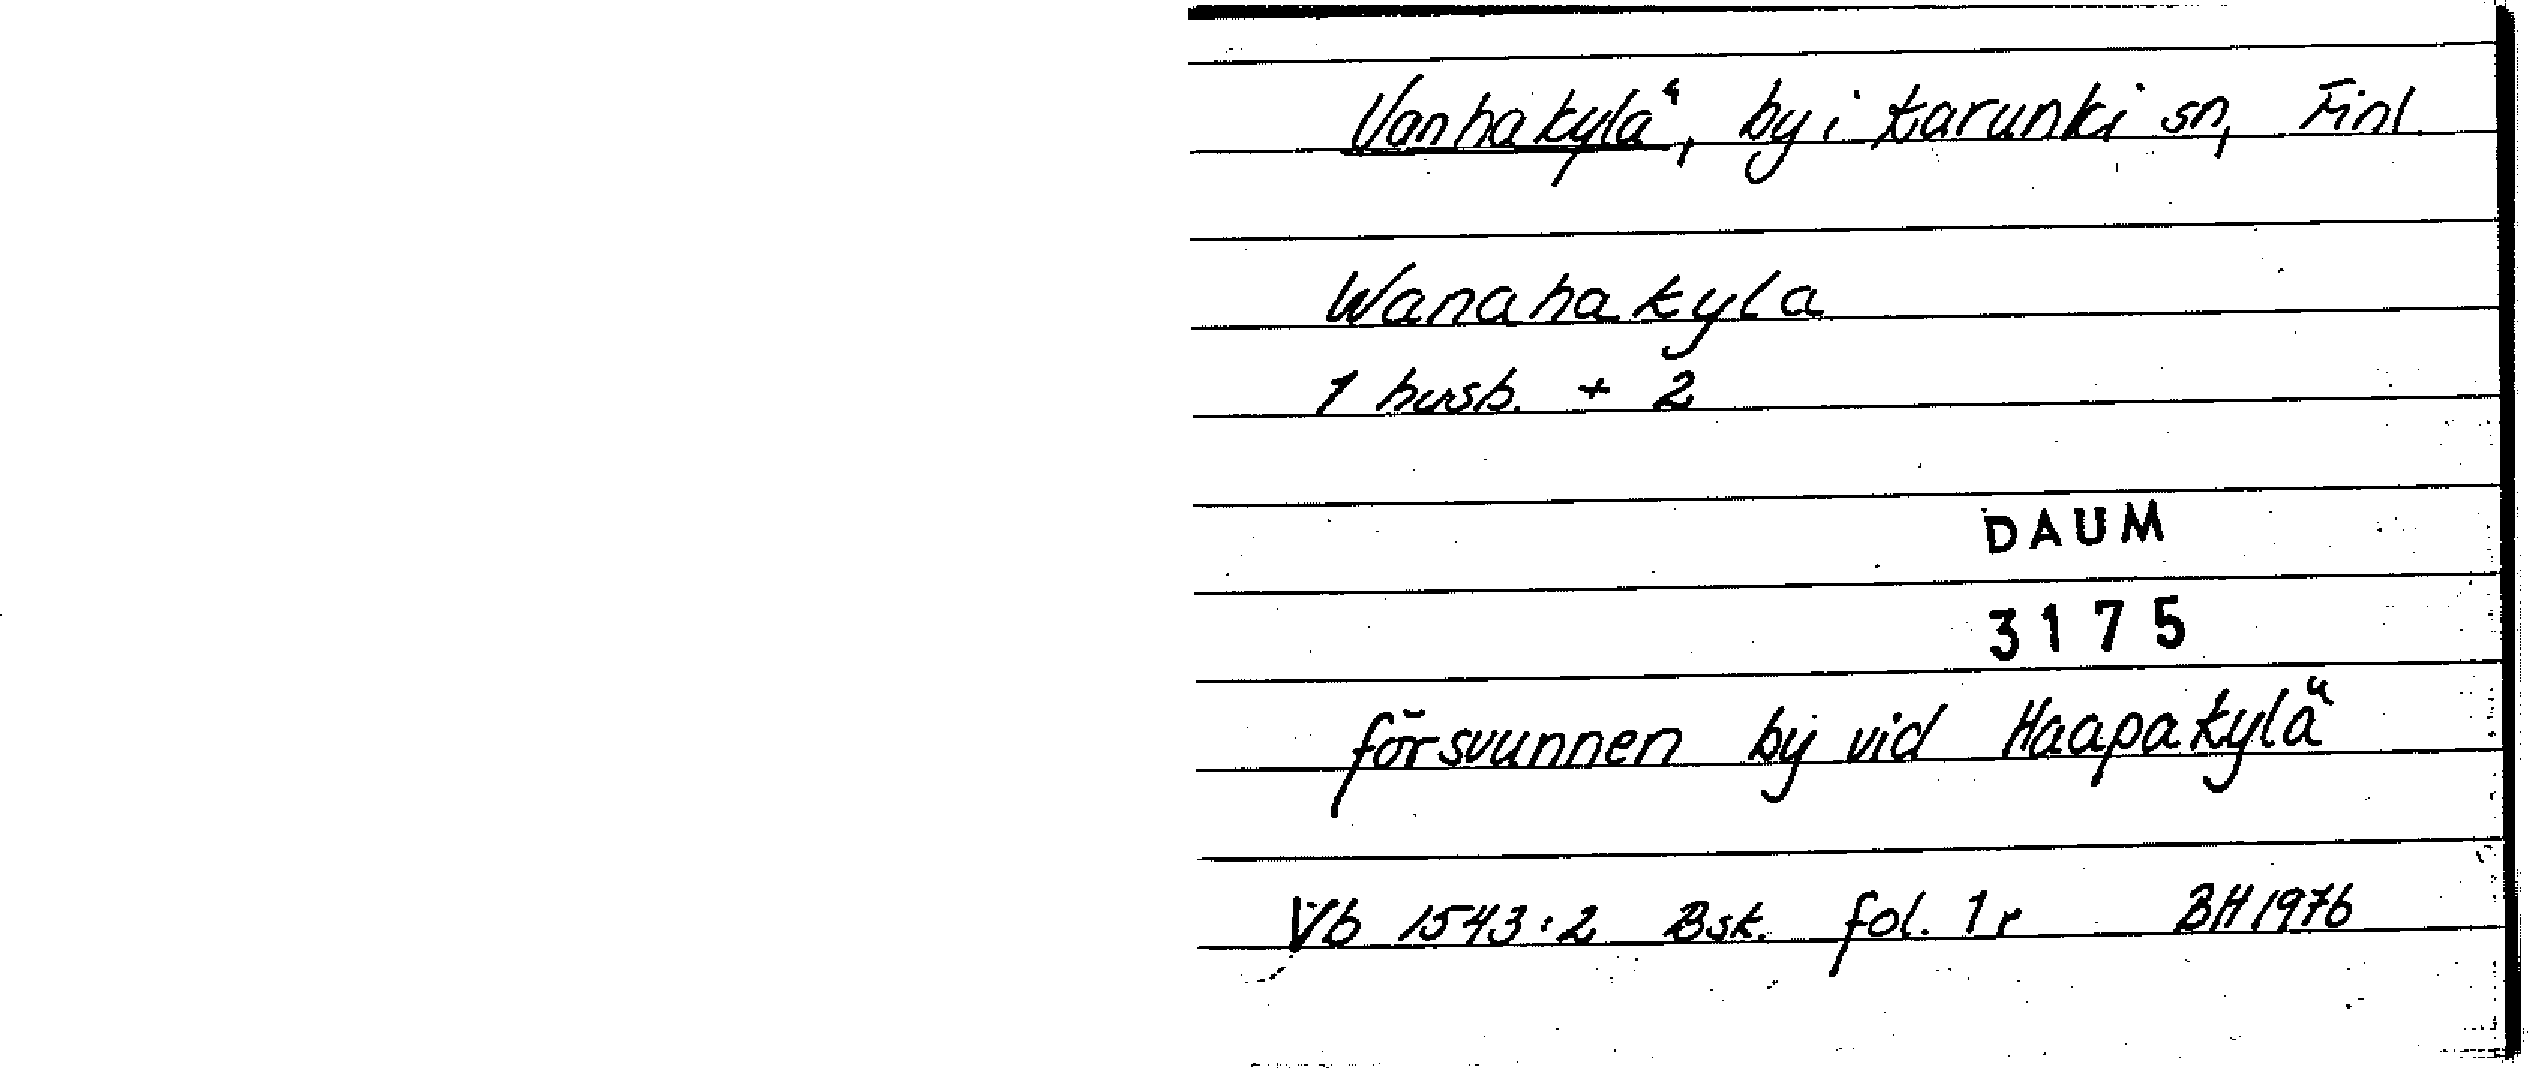 Vanhakylä, by i Karunki sn, Finl.
Wanahakyla
1 husb. + 2
DAUM
3175
försvunnen by vid Haapakylä
Vb 1543:2 Bsk. fol. 1r BH 1976